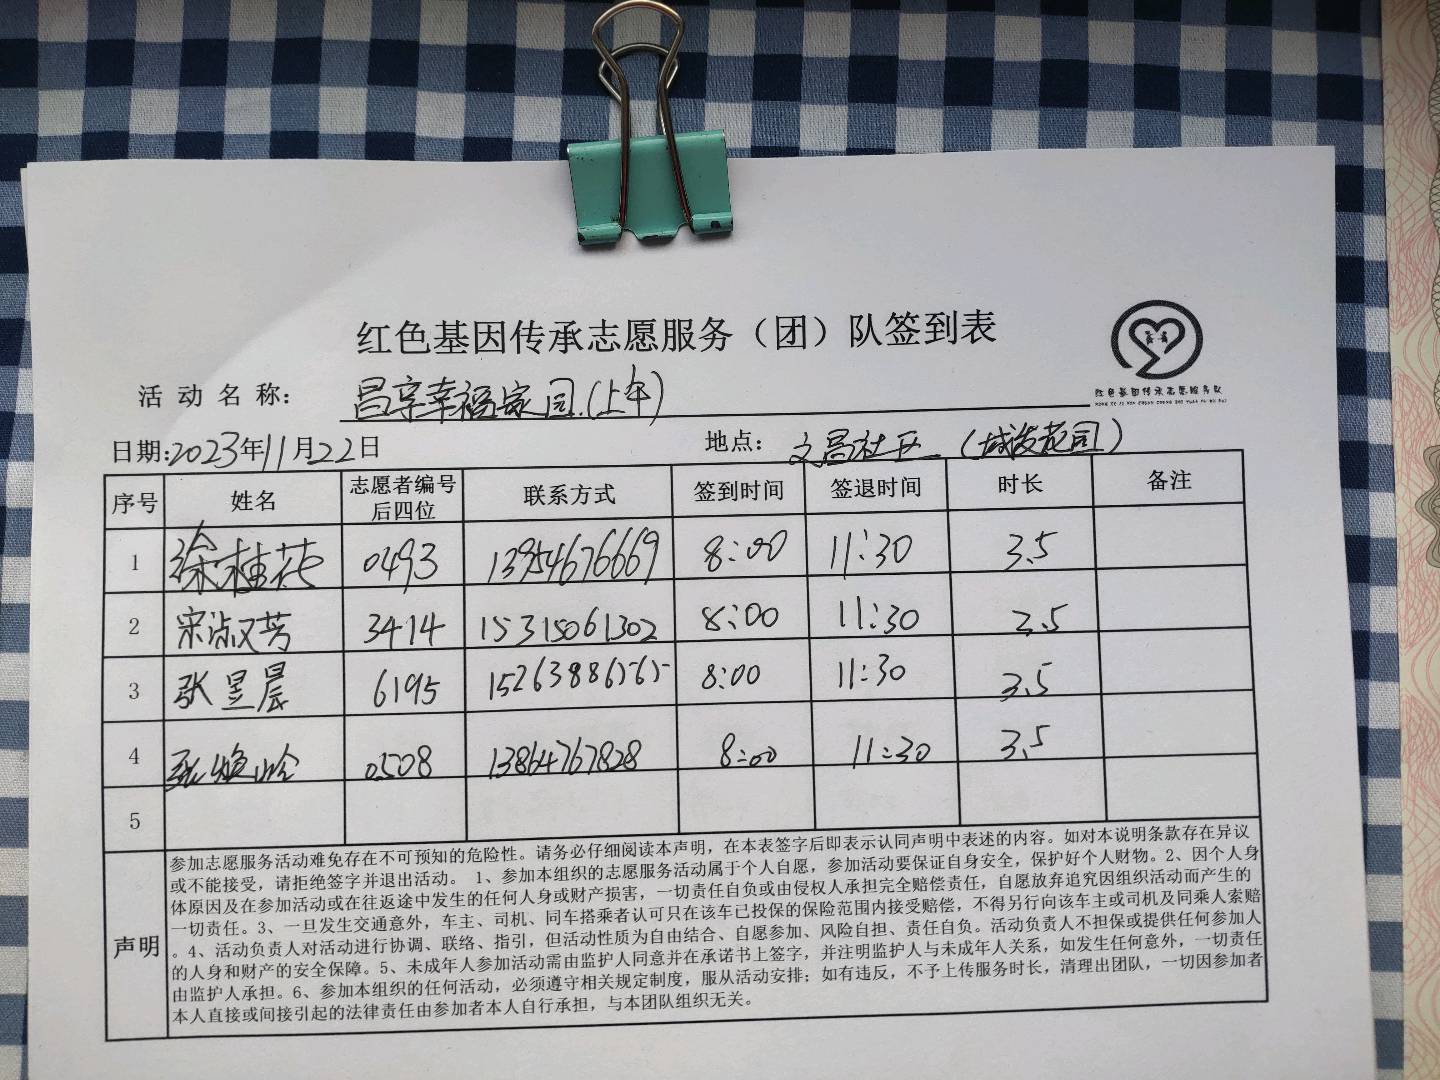 红色基因传承志愿服务（团）队签到表
红色基因传承志愿服务队
活动名称： 昌享幸福家园.(上午)
日期:2023年11月22日 地点： 文昌社区 (城发花园)
序号 姓名 志愿者编号后四位 联系方式 签到时间 签退时间 时长 备注
1 徐桂花 0493 13954676669 8:00 11:30 3.5
2 宋淑芳 3414 15315061302 8:00 11:30 3.5
3 张昱晨 6195 15263886565 8:00 11:30 3.5
4 张焕 0508 13864767828 8:00 11:30 3.5
5
声明
参加志愿服务活动难免存在不可预知的危险性。请务必仔细阅读本声明，在本表签字后即表示认同声明中表述的内容。如对本说明条款存在异议
或不能接受，请拒绝签字并退出活动。 1、参加本组织的志愿服务活动属于个人自愿，参加活动要保证自身安全，保护好个人财物。2、因个人身
体原因及在参加活动或在往返途中发生的任何人身或财产损害，一切责任自负或由侵权人承担完全赔偿责任，自愿放弃追究因组织活动而产生的
一切责任。3、一旦发生交通意外，车主、司机、同车搭乘者认可只在该车已投保的保险范围内接受赔偿，不得另行向该车主或司机及同乘人索赔
。4、活动负责人对活动进行协调、联络、指引，但活动性质为自由结合、自愿参加、风险自担、责任自负。活动负责人不担保或提供任何参加人
的人身和财产的安全保障。5、未成年人参加活动需由监护人同意并在承诺书上签字，并注明监护人与未成年人关系，如发生任何意外，一切责任
由监护人承担。6、参加本组织的任何活动，必须遵守相关规定制度，服从活动安排；如有违反，不予上传服务时长，清理出团队，一切因参加者
本人直接或间接引起的法律责任由参加者本人自行承担，与本团队组织无关。